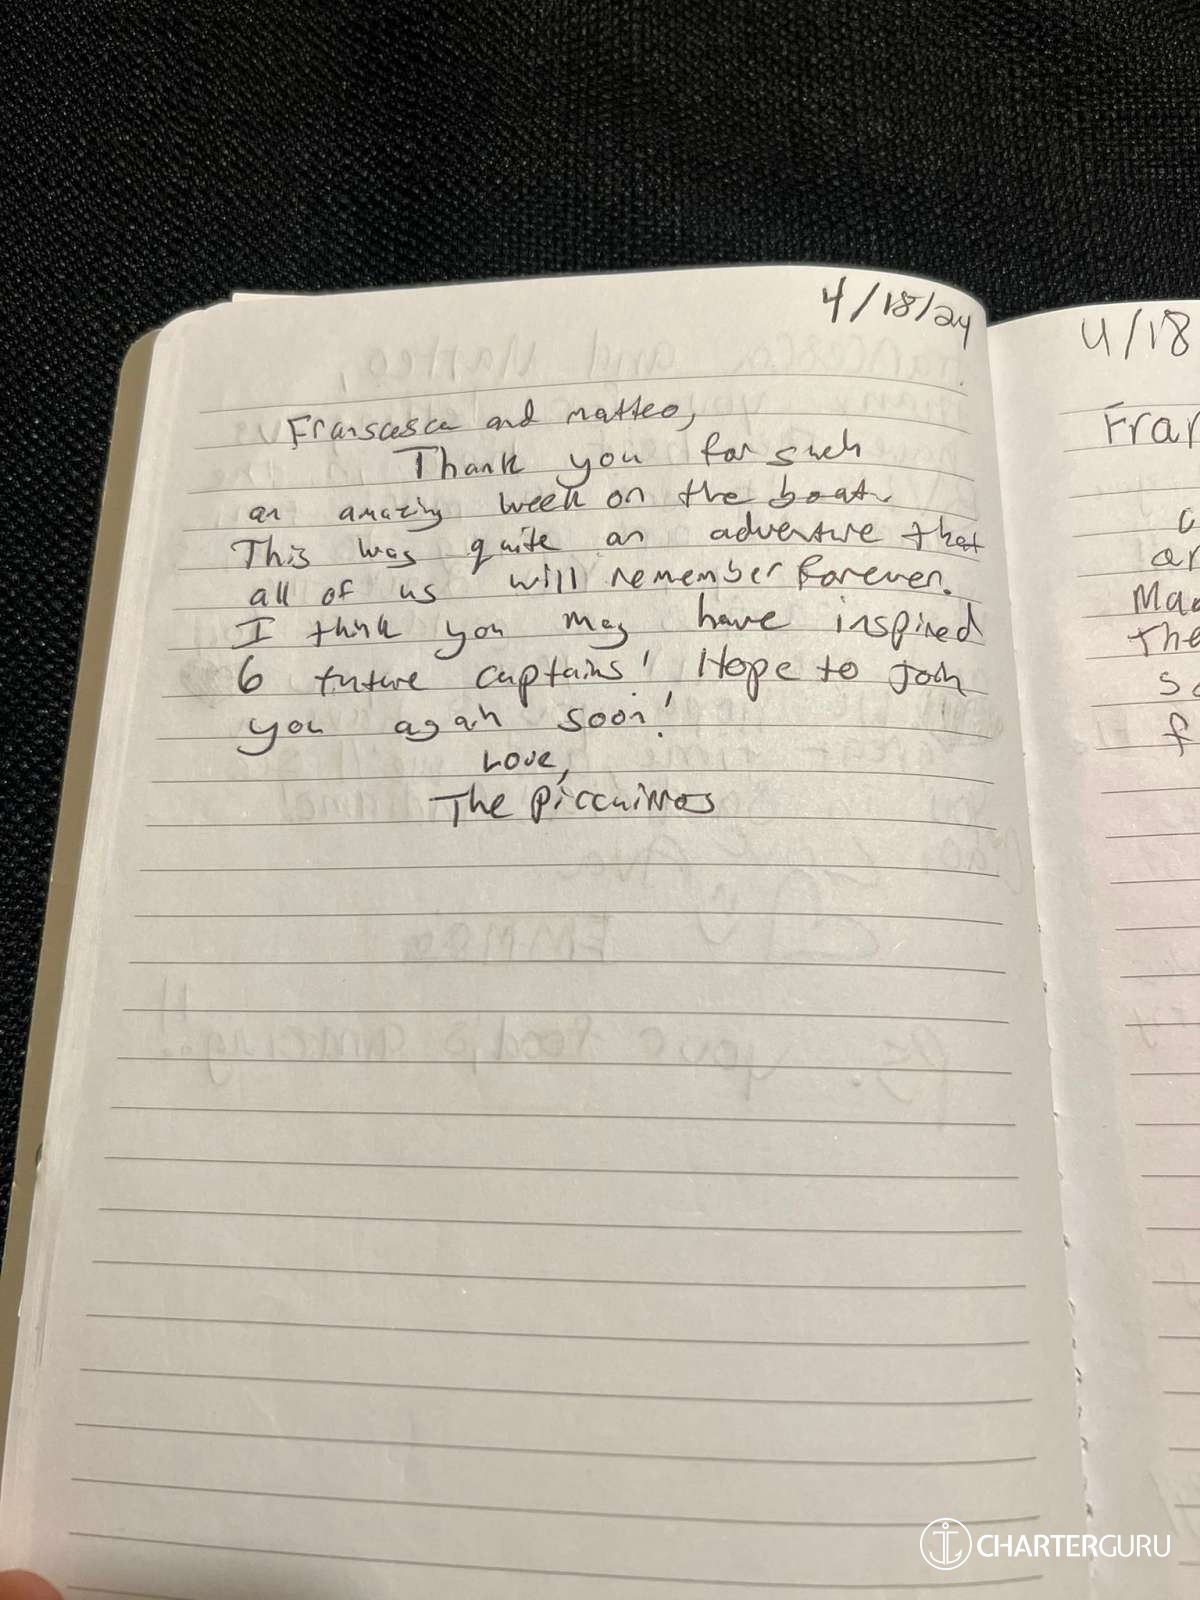 4/18/24
Franscesca and Matteo,
Thank you for such
an amazing week on the boat.
This was quite an adventure that
all of us will remember forever.
I think you may have inspired
6 future captains! Hope to join
you again soon!
Love,
The
4/18
Fran
Mad
the
so
f
CHARTERGURU